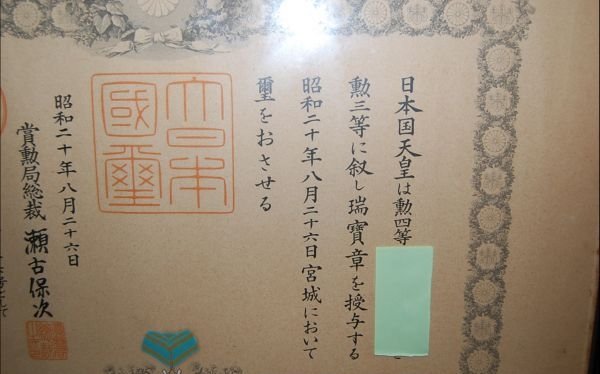 日本国天皇は勲四等
勲三等に叙し瑞寶章を授与する
昭和二十年八月二十六日宮城において
璽をおさせる
大日本
國璽
昭和二十年八月二十六日
賞勲局総裁 瀬古保次